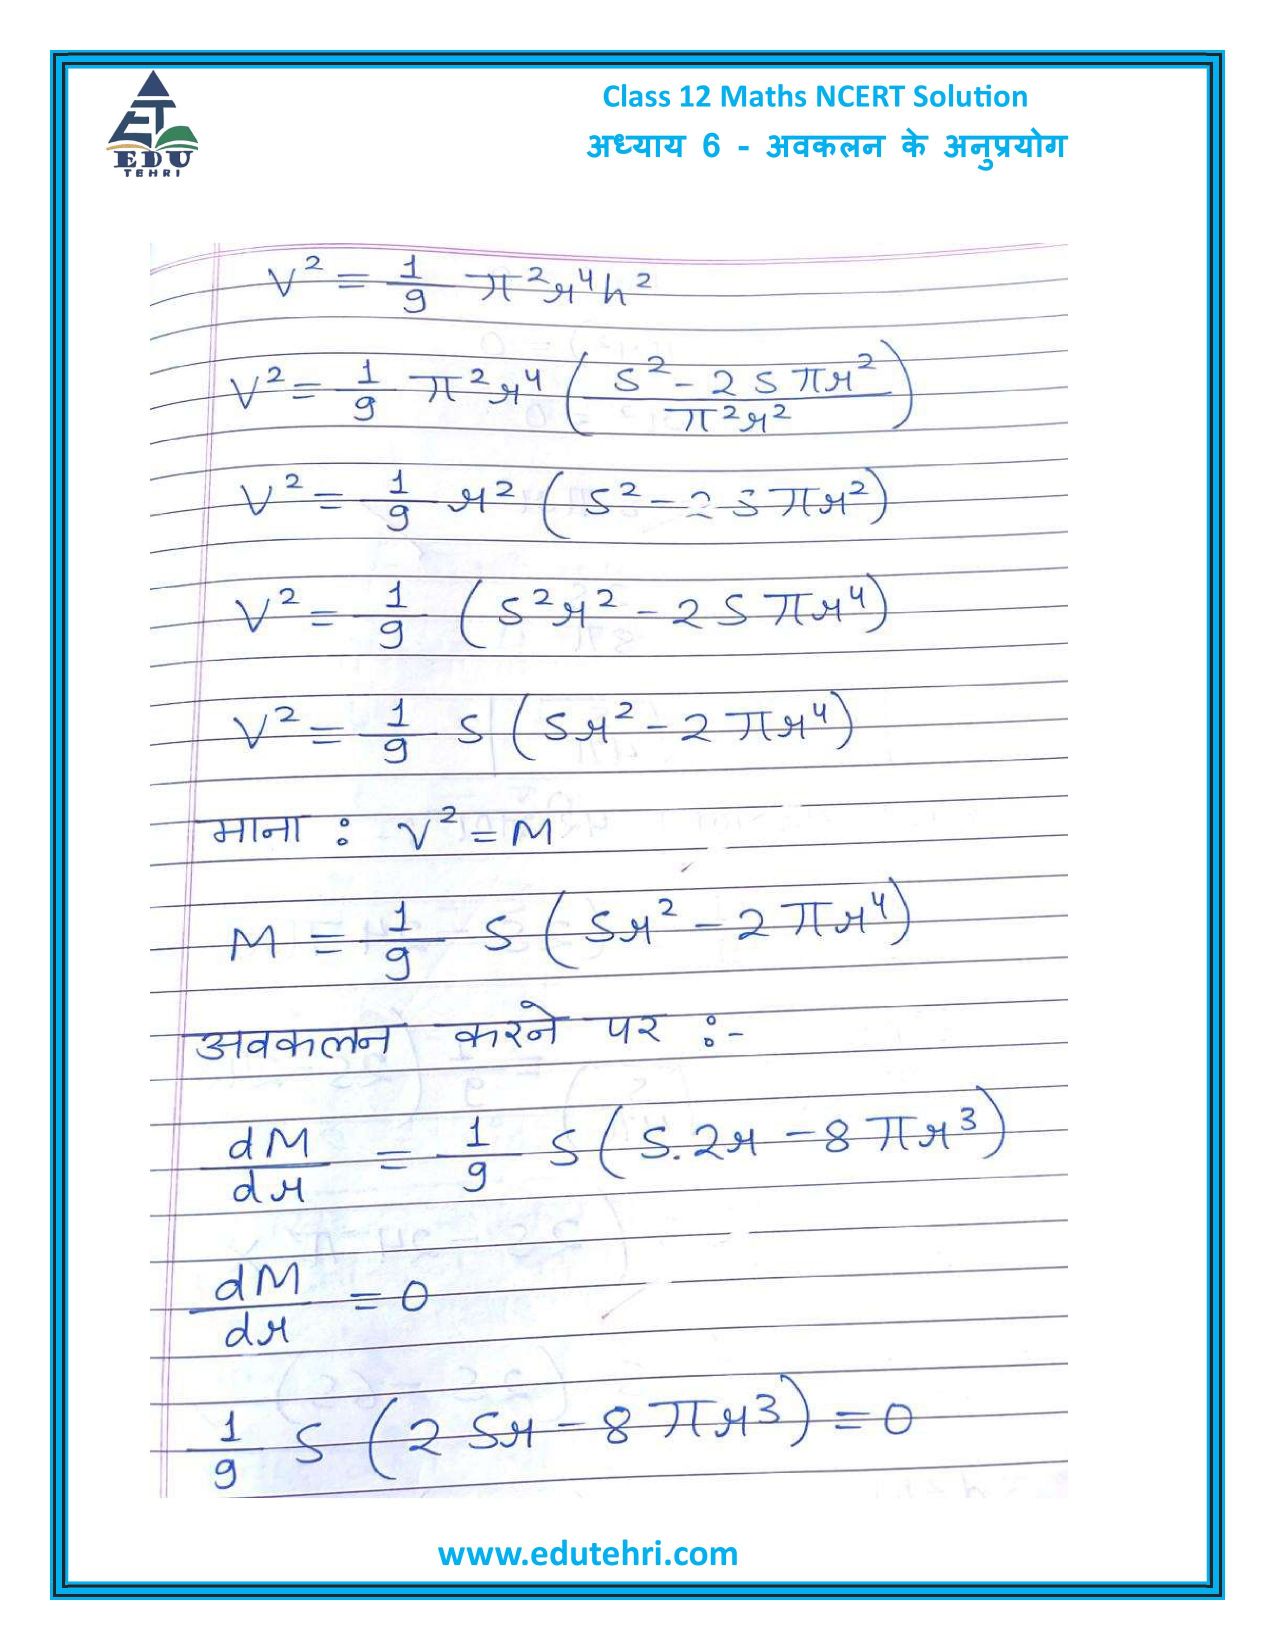 ET
EDU
TEHRI
Class 12 Maths NCERT Solution
अध्याय 6 - अवकलन के अनुप्रयोग
V² = 1/9 π²r⁴h²
V² = 1/9 π²r⁴ (S² - 2Sπr² / π²r²)
V² = 1/9 r² (S² - 2Sπr²)
V² = 1/9 (S²r² - 2Sπr⁴)
V² = 1/9 S (Sr² - 2πr⁴)
माना : V² = M
M = 1/9 S (Sr² - 2πr⁴)
अवकलन करने पर :-
dM/dr = 1/9 S (S.2r - 8πr³)
dM/dr = 0
1/9 S (2Sr - 8πr³) = 0
www.edutehri.com